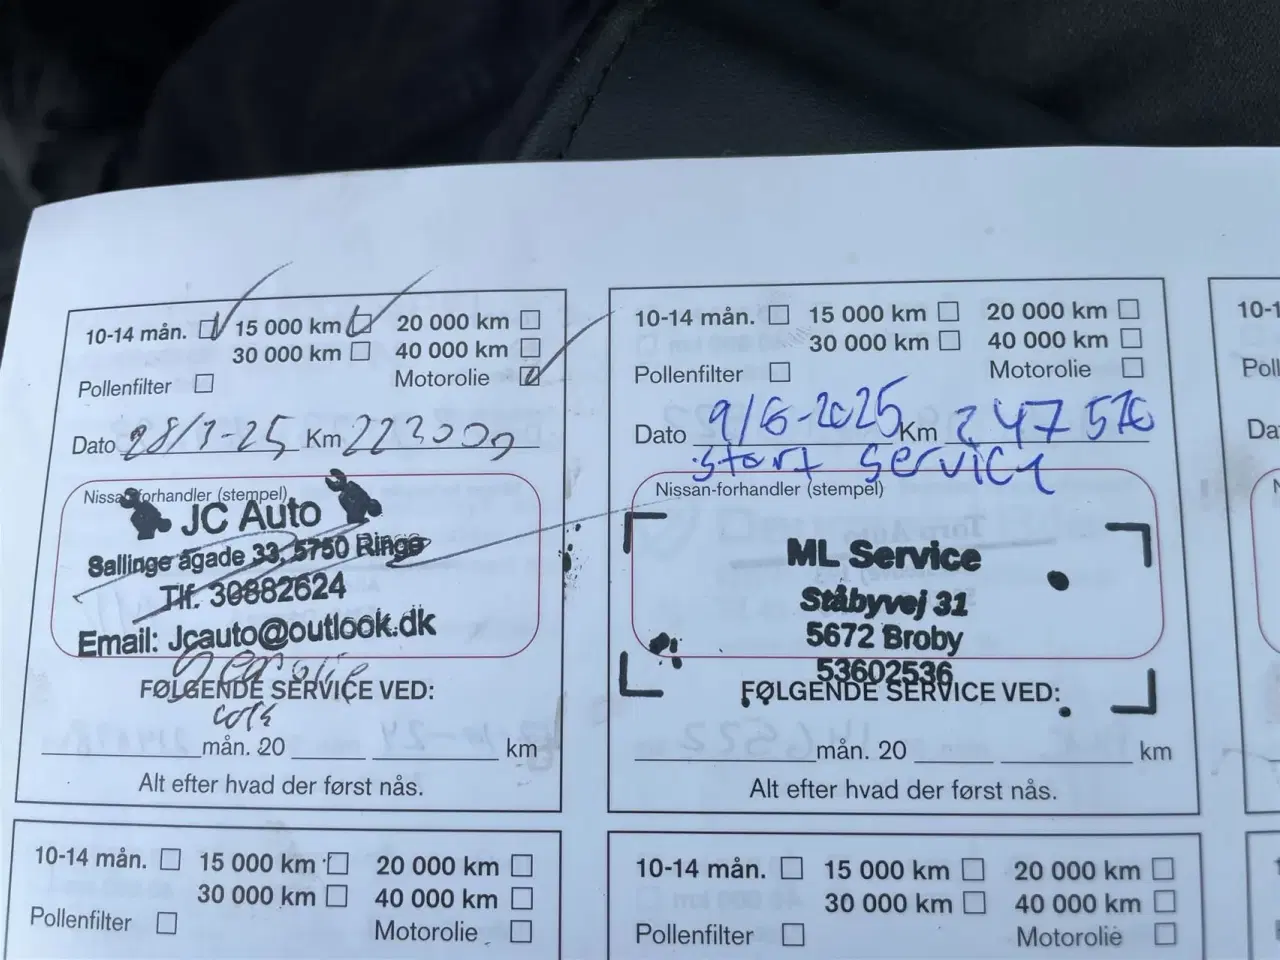 10-14 mån. 15 000 km 20 000 km
30 000 km 40 000 km
Pollenfilter Motorolie
Dato 28/1-25 Km 223009
Nissan-forhandler (stempel)
JC Auto
Sallinge ågade 33, 5750 Ringe
Tlf. 30882624
Email: Jcauto@outlook.dk
Gearolie
FØLGENDE SERVICE VED:
mån. 20 km
Alt efter hvad der først nås.
10-14 mån. 15 000 km 20 000 km
30 000 km 40 000 km
Pollenfilter Motorolie
Dato 9/6-2025 Km 247570
stort service
Nissan-forhandler (stempel)
ML Service
Ståbyvej 31
5672 Broby
53602536
FØLGENDE SERVICE VED:
mån. 20 km
Alt efter hvad der først nås.
10-1
Poll
Da
N
10-14 mån. 15 000 km 20 000 km
30 000 km 40 000 km
Pollenfilter Motorolie
10-14 mån. 15 000 km 20 000 km
30 000 km 40 000 km
Pollenfilter Motorolie